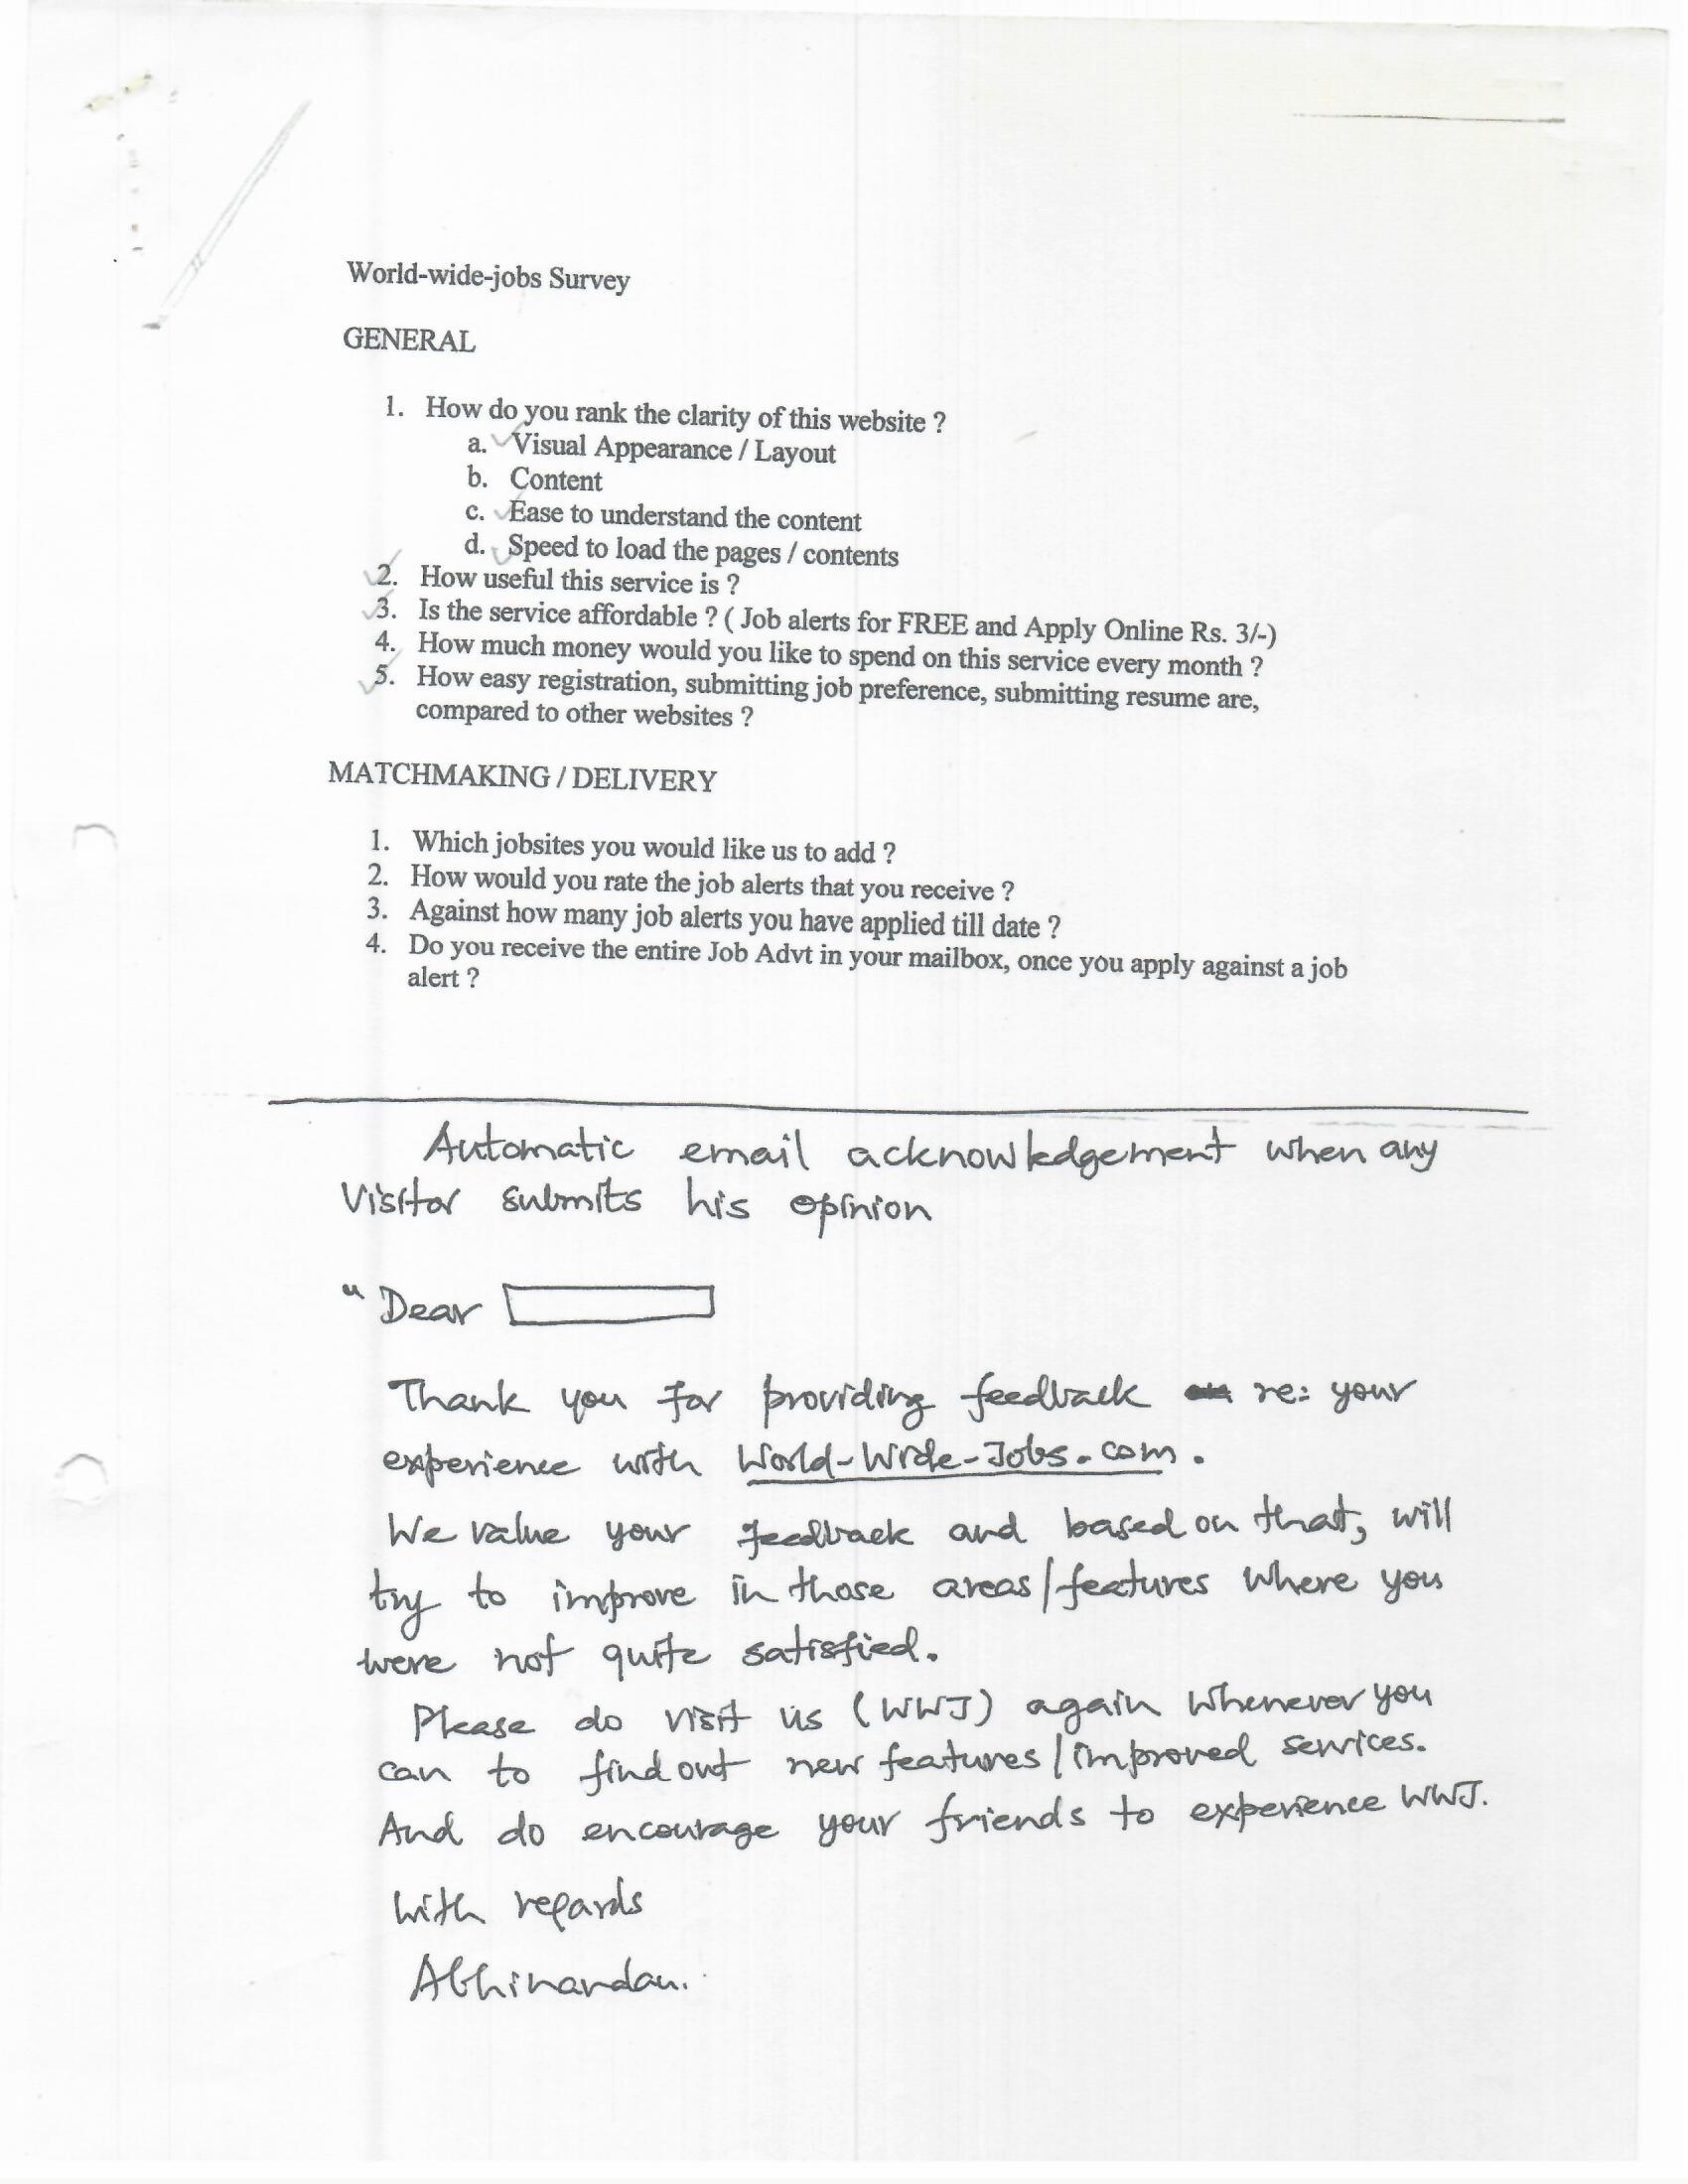 World-wide-jobs Survey
GENERAL
1. How do you rank the clarity of this website ?
a. Visual Appearance / Layout
b. Content
c. Ease to understand the content
d. Speed to load the pages / contents
2. How useful this service is ?
3. Is the service affordable ? ( Job alerts for FREE and Apply Online Rs. 3/-)
4. How much money would you like to spend on this service every month ?
5. How easy registration, submitting job preference, submitting resume are,
compared to other websites ?
MATCHMAKING / DELIVERY
1. Which jobsites you would like us to add ?
2. How would you rate the job alerts that you receive ?
3. Against how many job alerts you have applied till date ?
4. Do you receive the entire Job Advt in your mailbox, once you apply against a job
alert ?
Automatic email acknowledgement when any
Visitor submits his opinion
"Dear
Thank you for providing feedback re: your
experience with World-Wide-Jobs.com.
We value your feedback and based on that, will
try to improve in those areas/features where you
were not quite satisfied.
Please do visit us (WWJ) again whenever you
can to find out new features/improved services.
And do encourage your friends to experience WWJ.
With regards
Abhinandan.